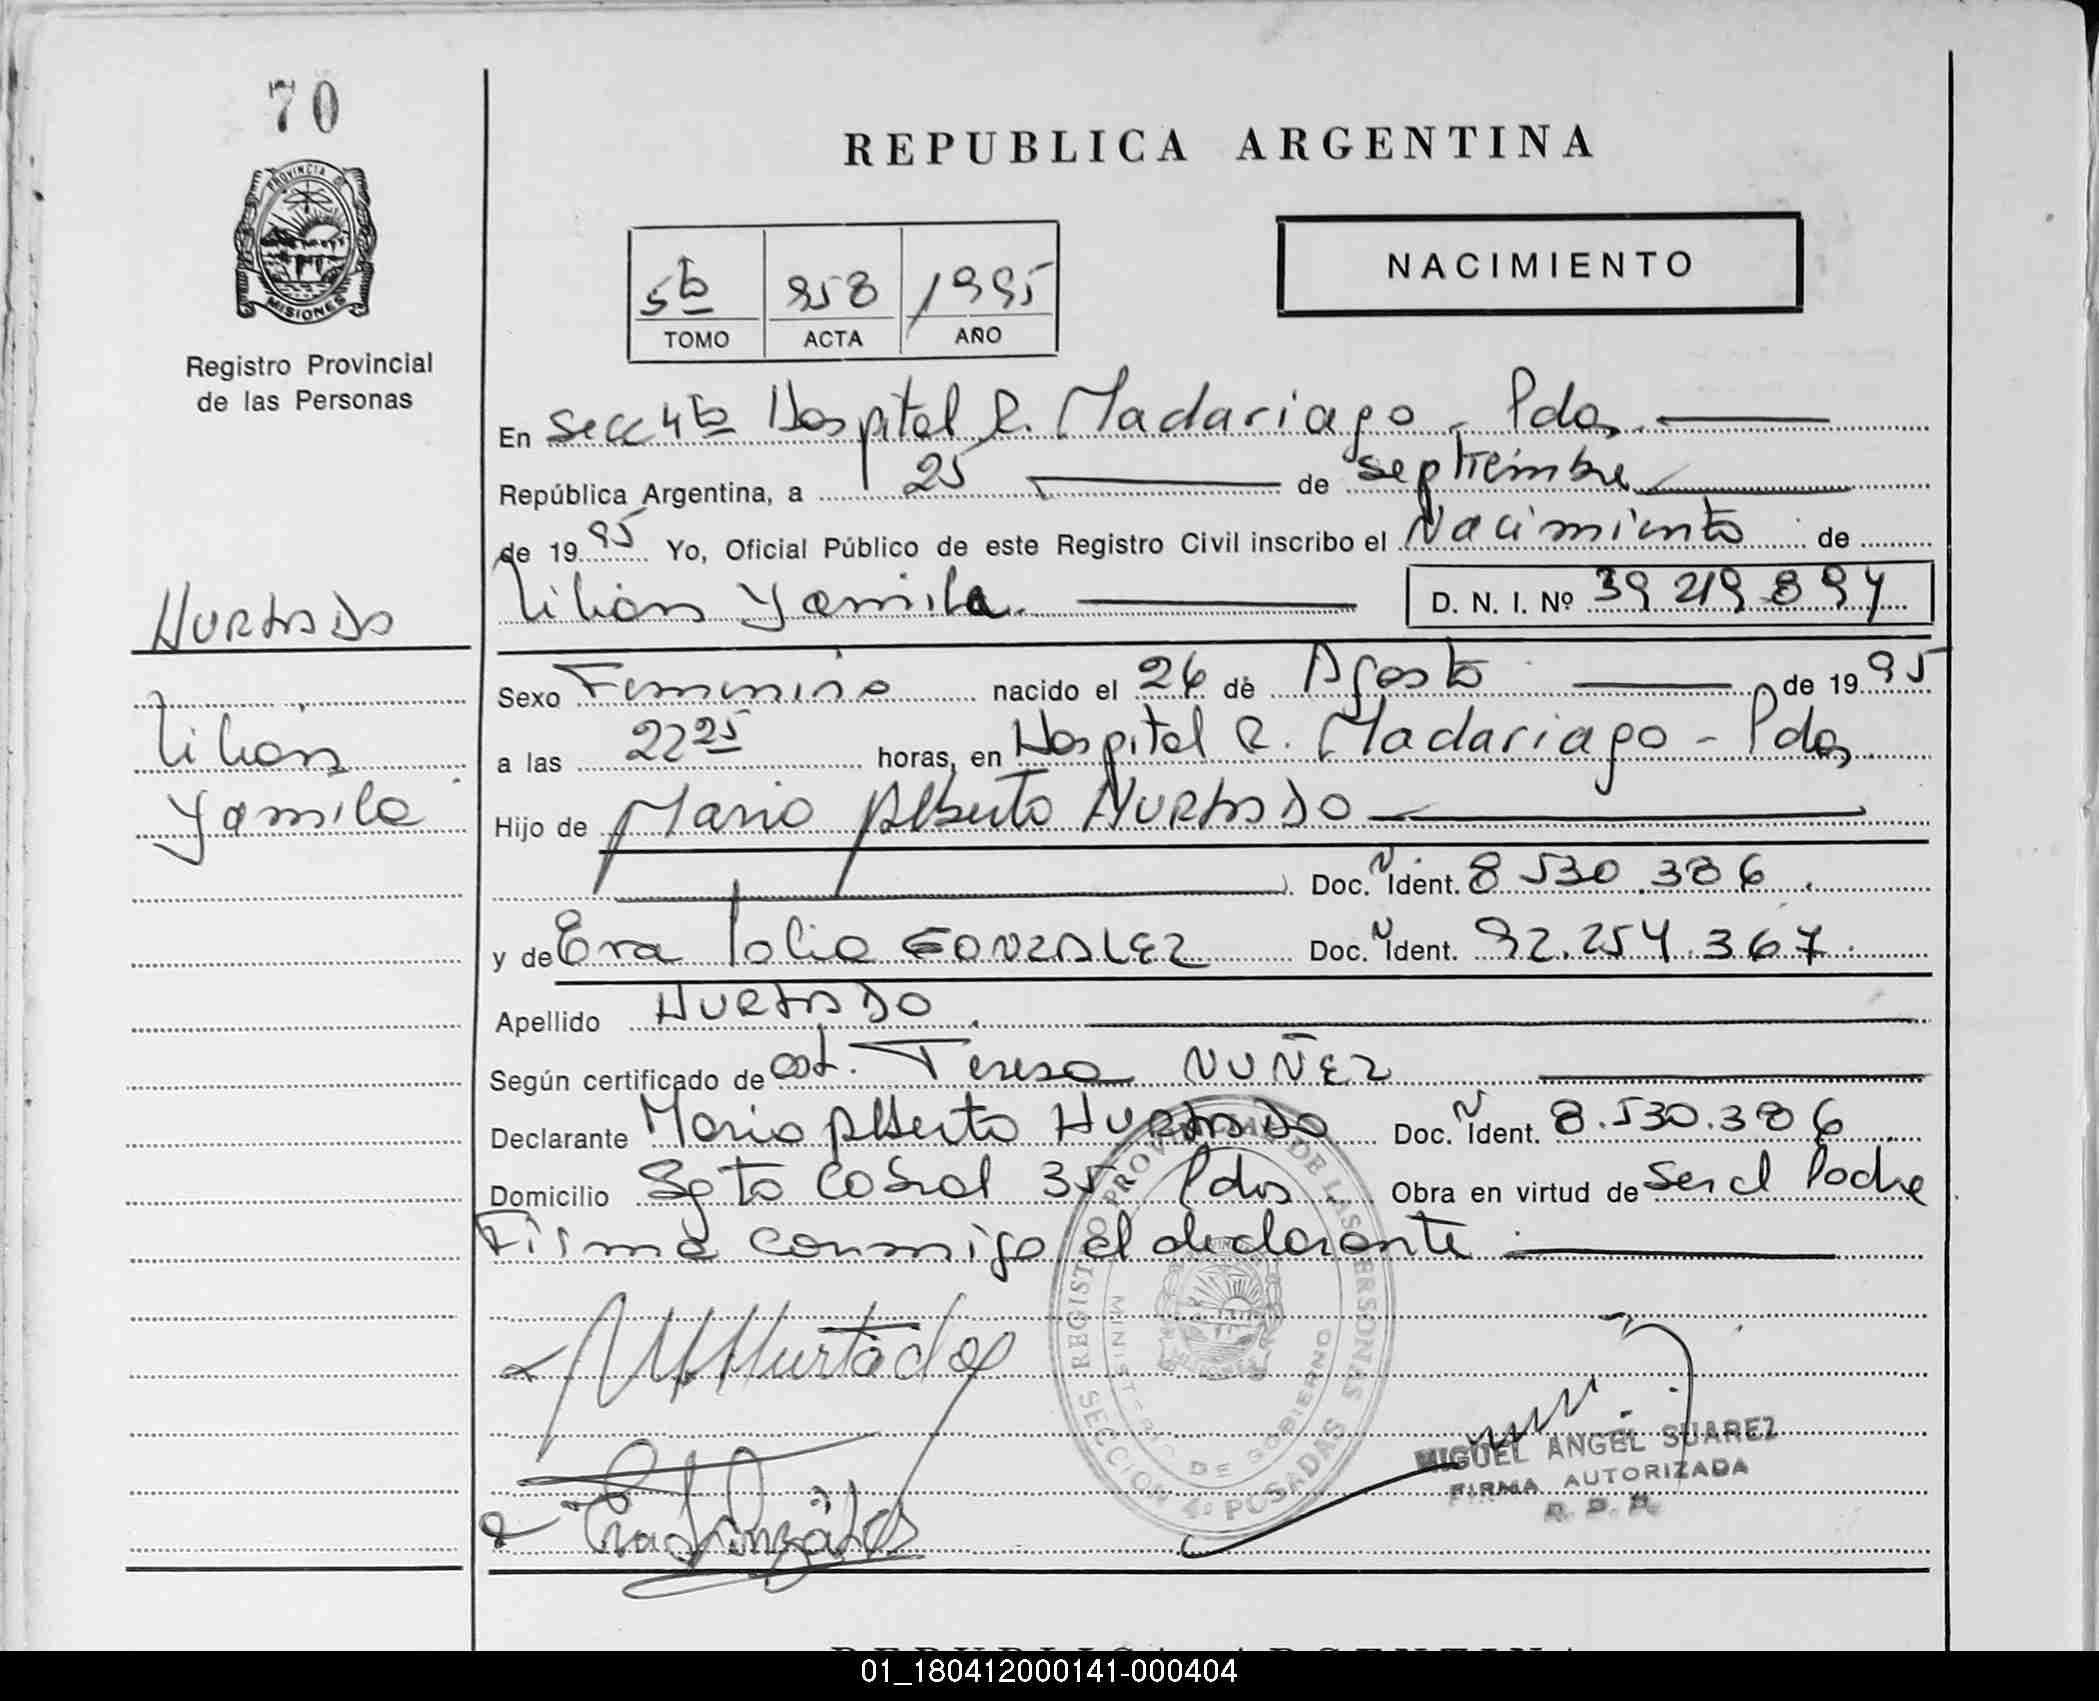 70
PROVINCIA DE
MISIONES
Registro Provincial
de las Personas
REPUBLICA ARGENTINA
NACIMIENTO
5to 958 1995
TOMO ACTA AÑO
En Secc 4ta Hospital R. Madariaga - Pdas.
República Argentina, a 25 de septiembre
de 1995 Yo, Oficial Público de este Registro Civil inscribo el Nacimiento de
Lilian Yamila. D. N. I. Nº 39 219 894
HURTADO
Lilian
Yamila
Sexo Femenino nacido el 26 de Agosto de 1995
a las 22 25 horas, en Hospital R. Madariaga - Pdas
Hijo de Mario Alberto HURTADO
Doc. N Ident. 8 530 386
y de Eva GONZALEZ Doc. N Ident. 92.254.367
Apellido HURTADO
Según certificado de obt. Teresa NUÑEZ
Declarante Mario Alberto HURTADO Doc. N Ident. 8.530.386
Domicilio Sgto Cabral 35 Pdas Obra en virtud de Ser el Padre
Firma conmigo el declarante
MHurtado
REGISTRO PROVINCIAL DE LAS PERSONAS
MINISTERIO DE GOBIERNO
SECCION 4º POSADAS
MIGUEL ANGEL SUAREZ
FIRMA AUTORIZADA
R. P. P.
01_180412000141-000404